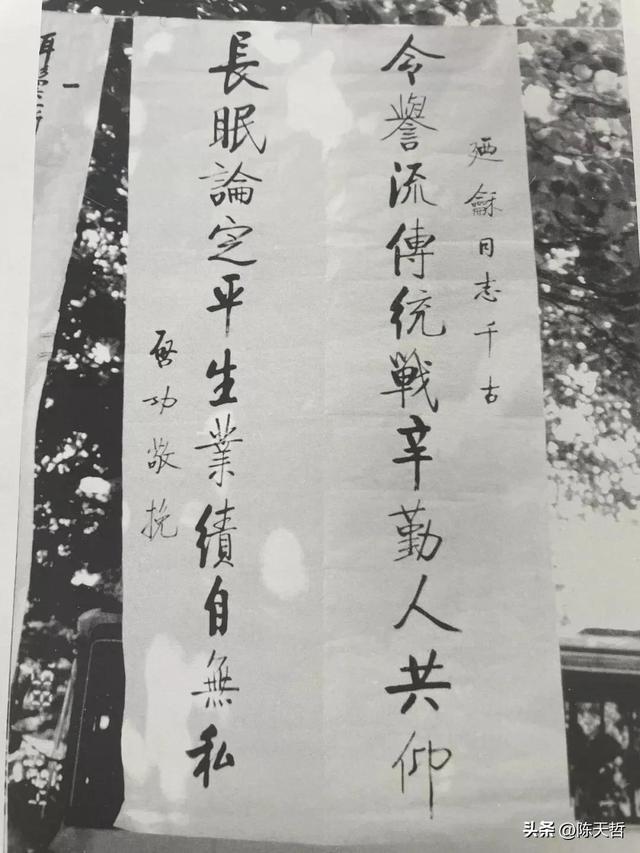 廼龢同志千古
令譽流傳統戰辛勤人共仰
長眠論定平生業績自無私
启功敬挽
头条 @陈天哲